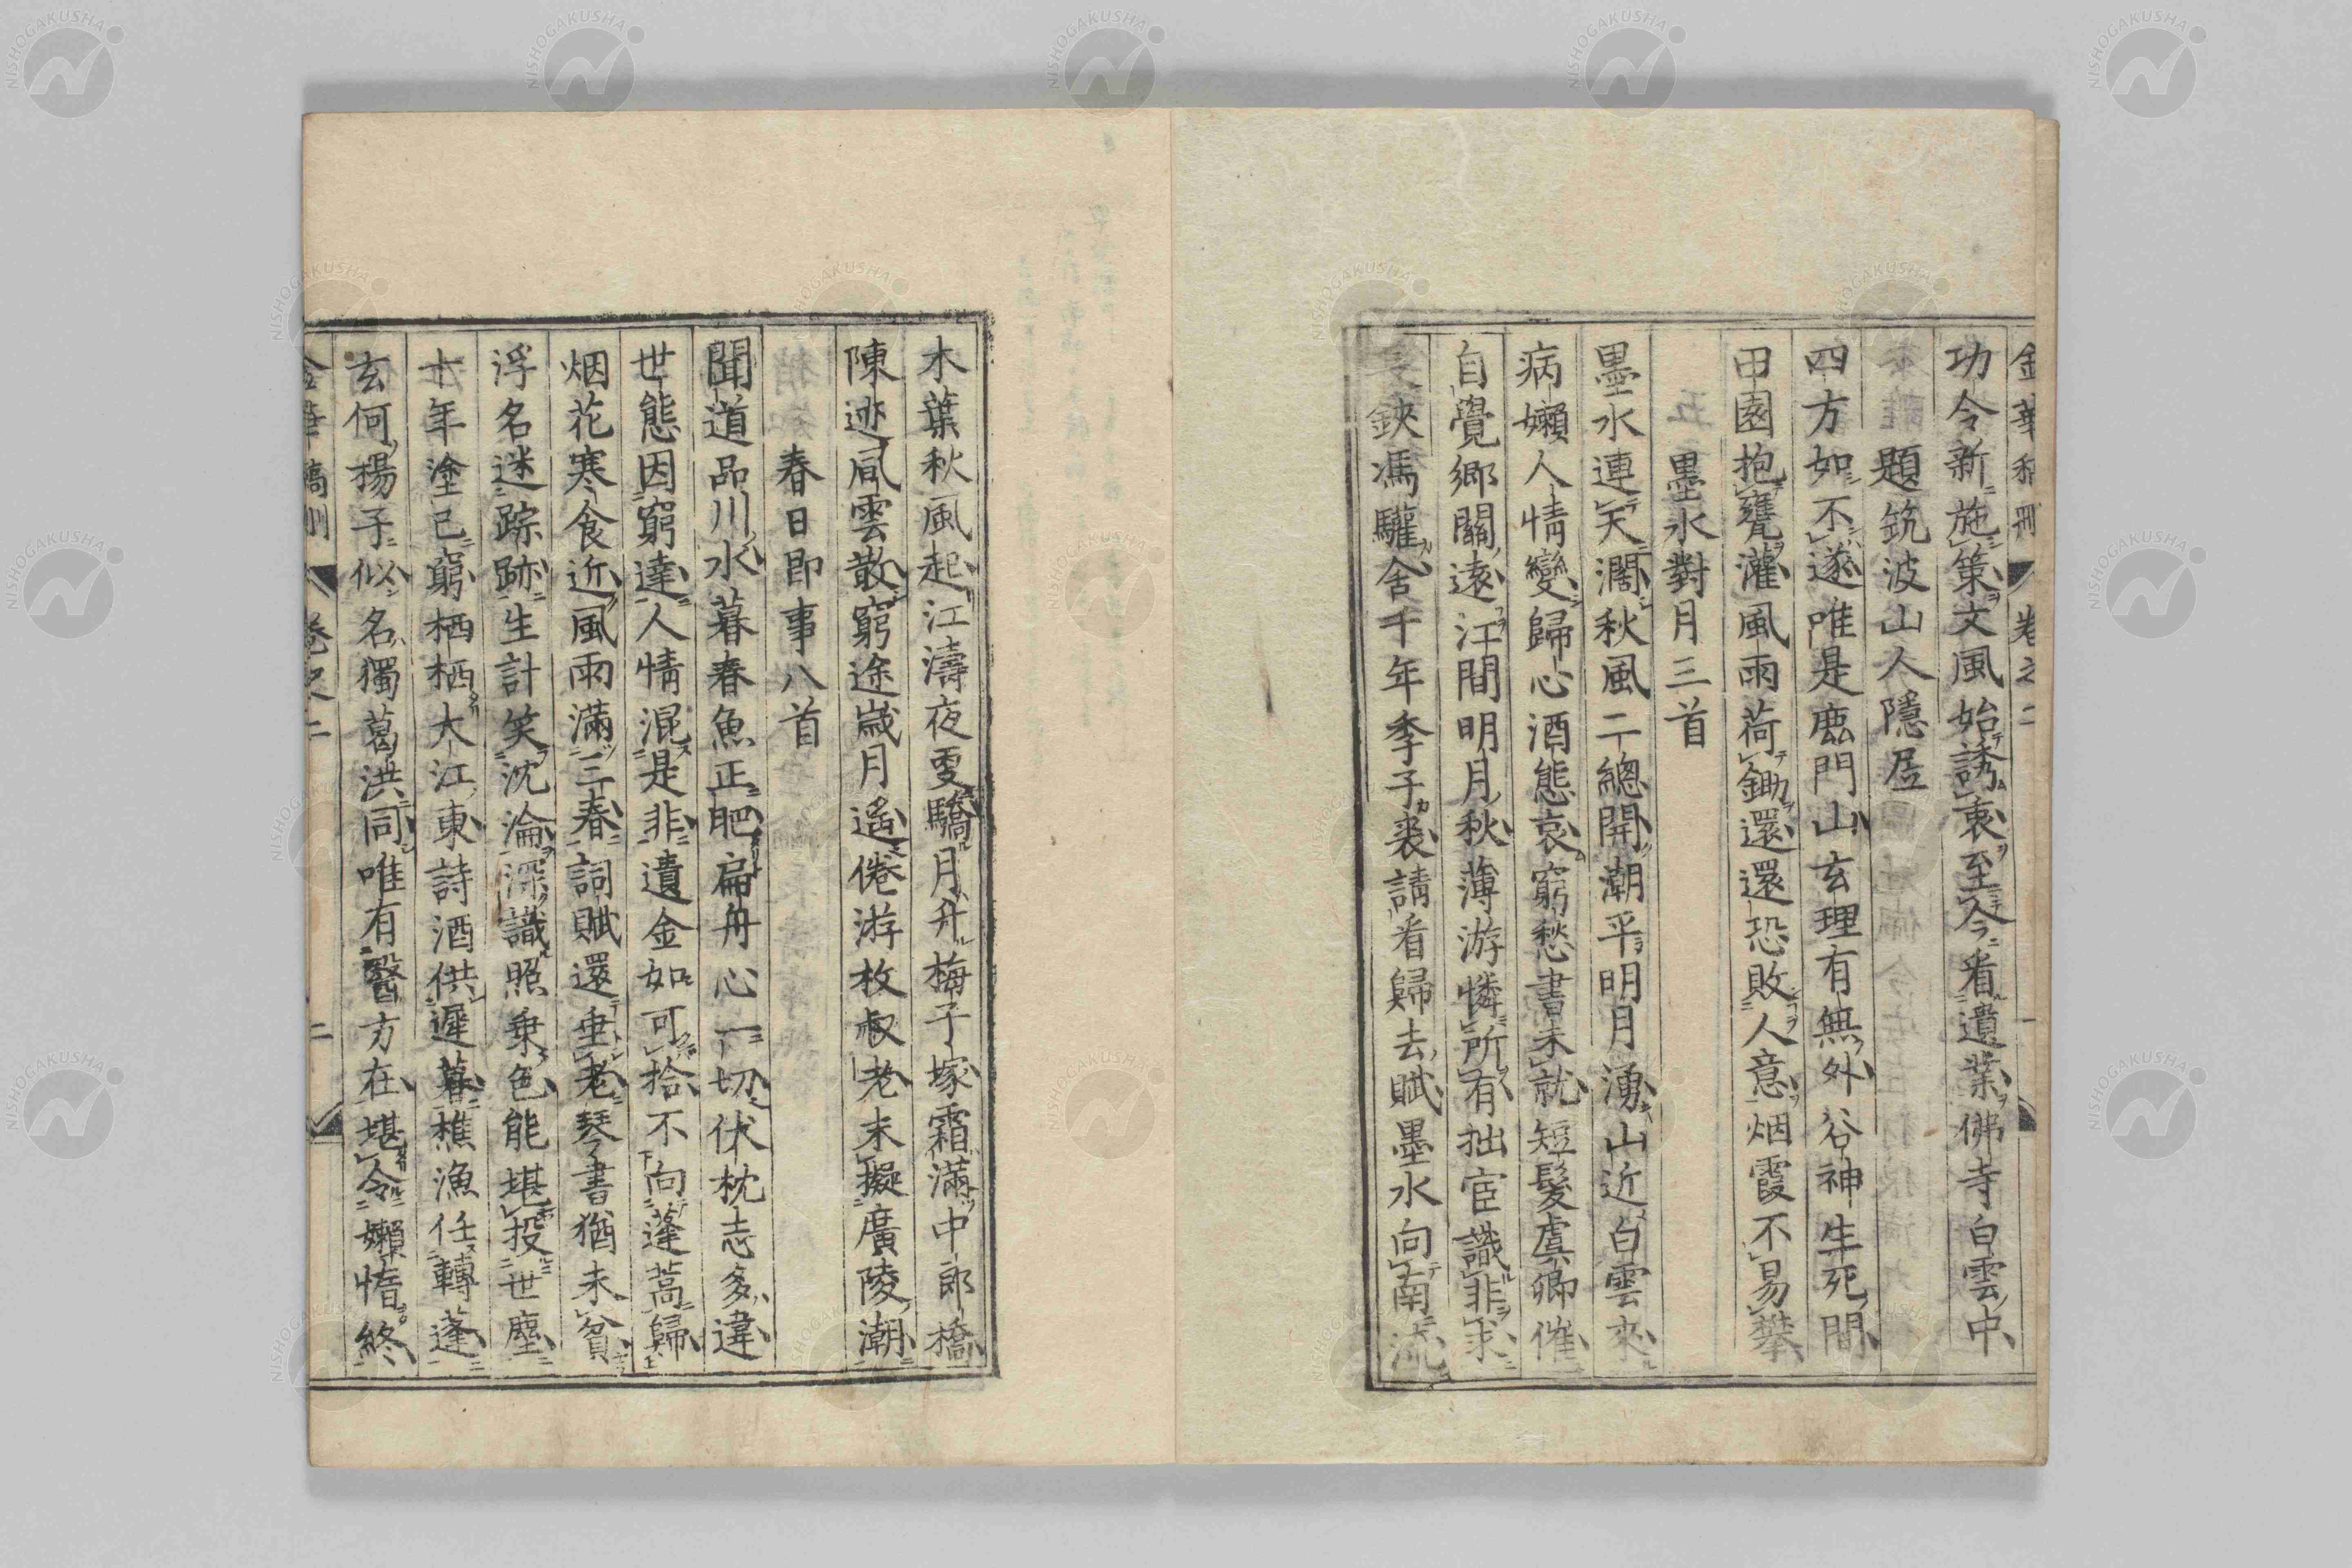 金華稿刪 卷之二 一
功令新施策文風始誘衷至今看遺業佛寺白雲中
題筑波山人隱居
四方如不遂唯是鹿門山玄理有無外谷神生死間
田園抱甕灌風雨荷鋤還還恐敗人意烟霞不易攀
墨水對月三首
墨水連天濶秋風二總開潮平明月湧山近白雲來
病嬾人情變歸心酒態哀窮愁書未就短髮虞卿催
自覺鄉關遠江間明月秋薄游憐所有拙宦識非求
鋏馮驩舍千年季子裘請看歸去賦墨水向南流
木葉秋風起江濤夜更驕月舟梅子塚霜滿中郎橋
陳迹風雲散窮途歲月遙倦游枚叔老未擬廣陵潮
春日即事八首
聞道品川水暮春魚正肥扁舟心一切伏枕志多違
世態因窮達人情混是非遺金如可拾不向蓬蒿歸
烟花寒食近風雨滿三春詞賦還垂老琴書猶未貧
浮名迷踪跡生計笑沈淪深識照乘色能堪投世塵
十年塗已窮栖栖大江東詩酒供遲暮樵漁任轉蓬
玄何楊子似名獨葛洪同唯有醫方在堪令嬾惰終
金華稿刪 卷之二 二
NISHOGAKUSHA